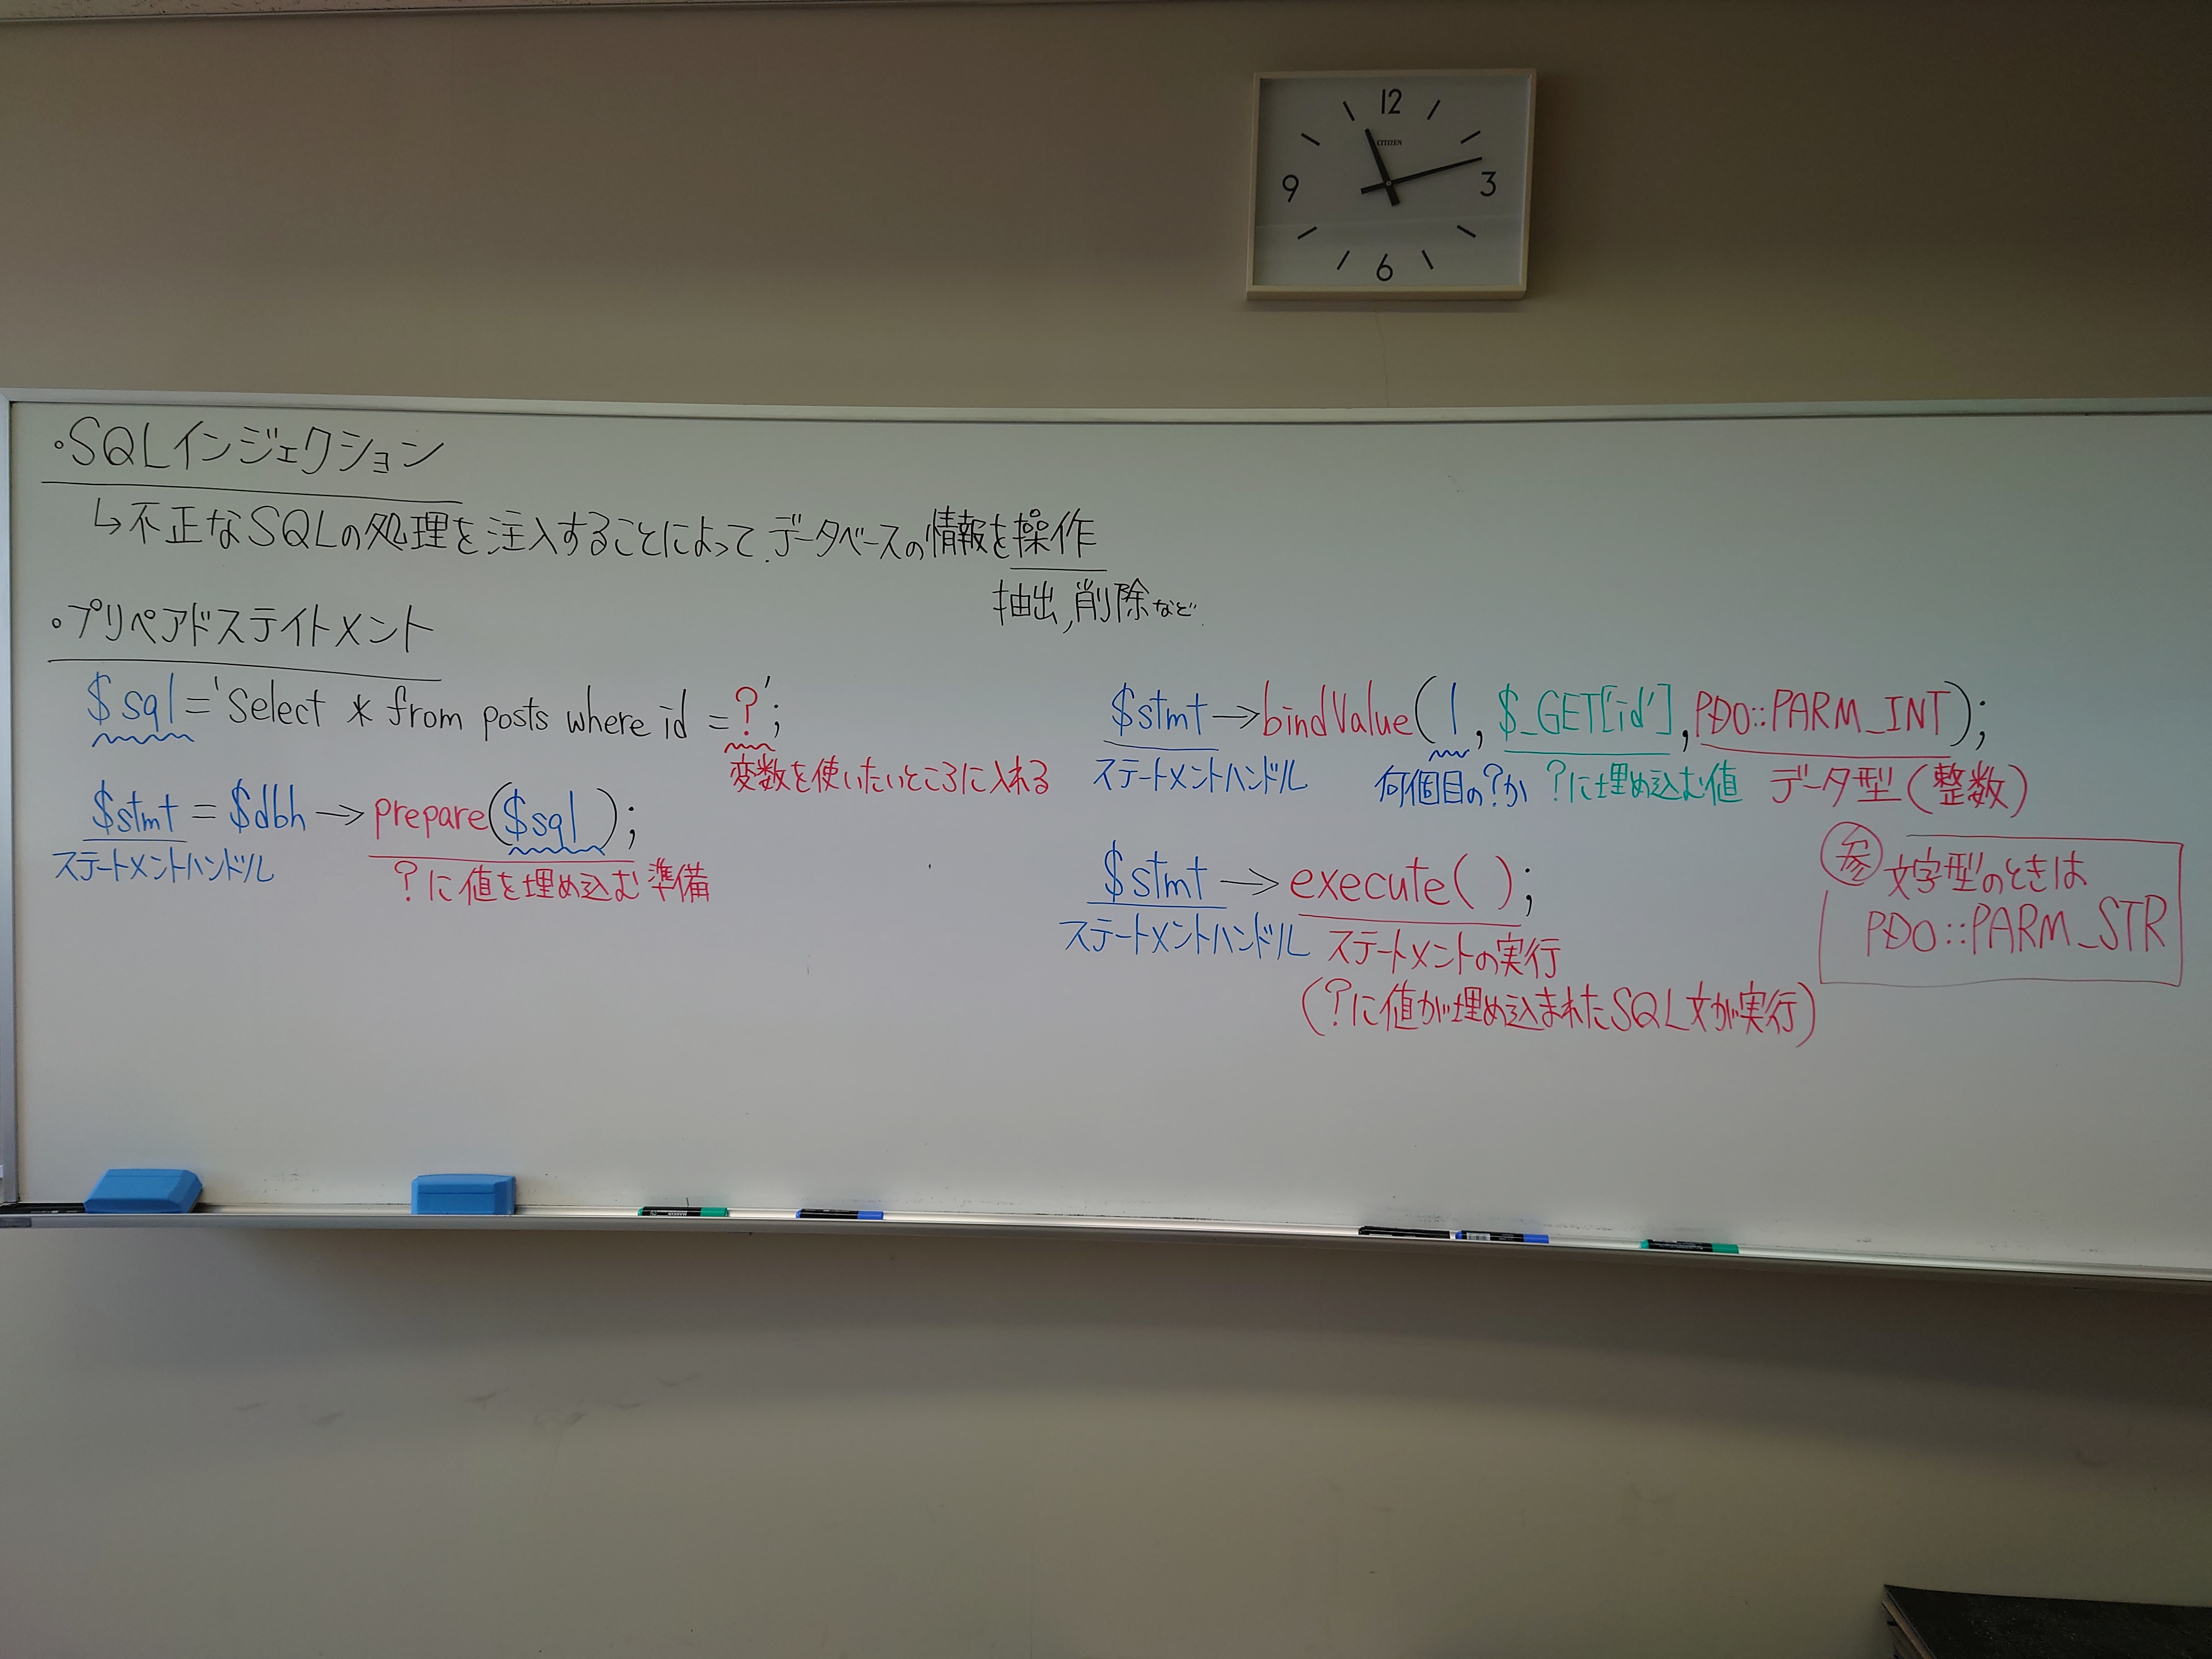 12
CITIZEN
9
3
6
・SQLインジェクション
↳不正なSQLの処理を注入することによって、データベースの情報を操作
抽出,削除など
・プリペアドステイトメント
$sql='select * from posts where id=?';
変数を使いたいところに入れる
$stmt=$dbh→prepare($sql);
ステートメントハンドル
?に値を埋め込む準備
$stmt→bindValue(1,$_GET['id'],PDO::PARM_INT);
ステートメントハンドル 何個目の?か ?に埋め込む値 データ型(整数)
$stmt→execute();
ステートメントハンドル ステートメントの実行
(?に値が埋め込まれたSQL文が実行)
参 文字型のときは
PDO::PARM_STR